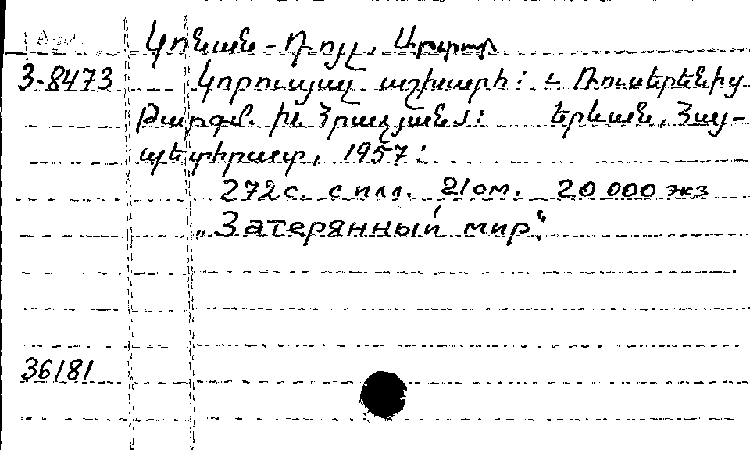 Կոնան-Դոյլ, Արտուր
3-8473 Կորուսյալ աշխարհ: — Ռուսերենից
թարգմ. Խ. Հրաչյանը: Երևան, Հայ-
պետհրատ, 1957:
272 с. с илл. 21 см. 20 000 экз
„Затерянный мир“.
36181